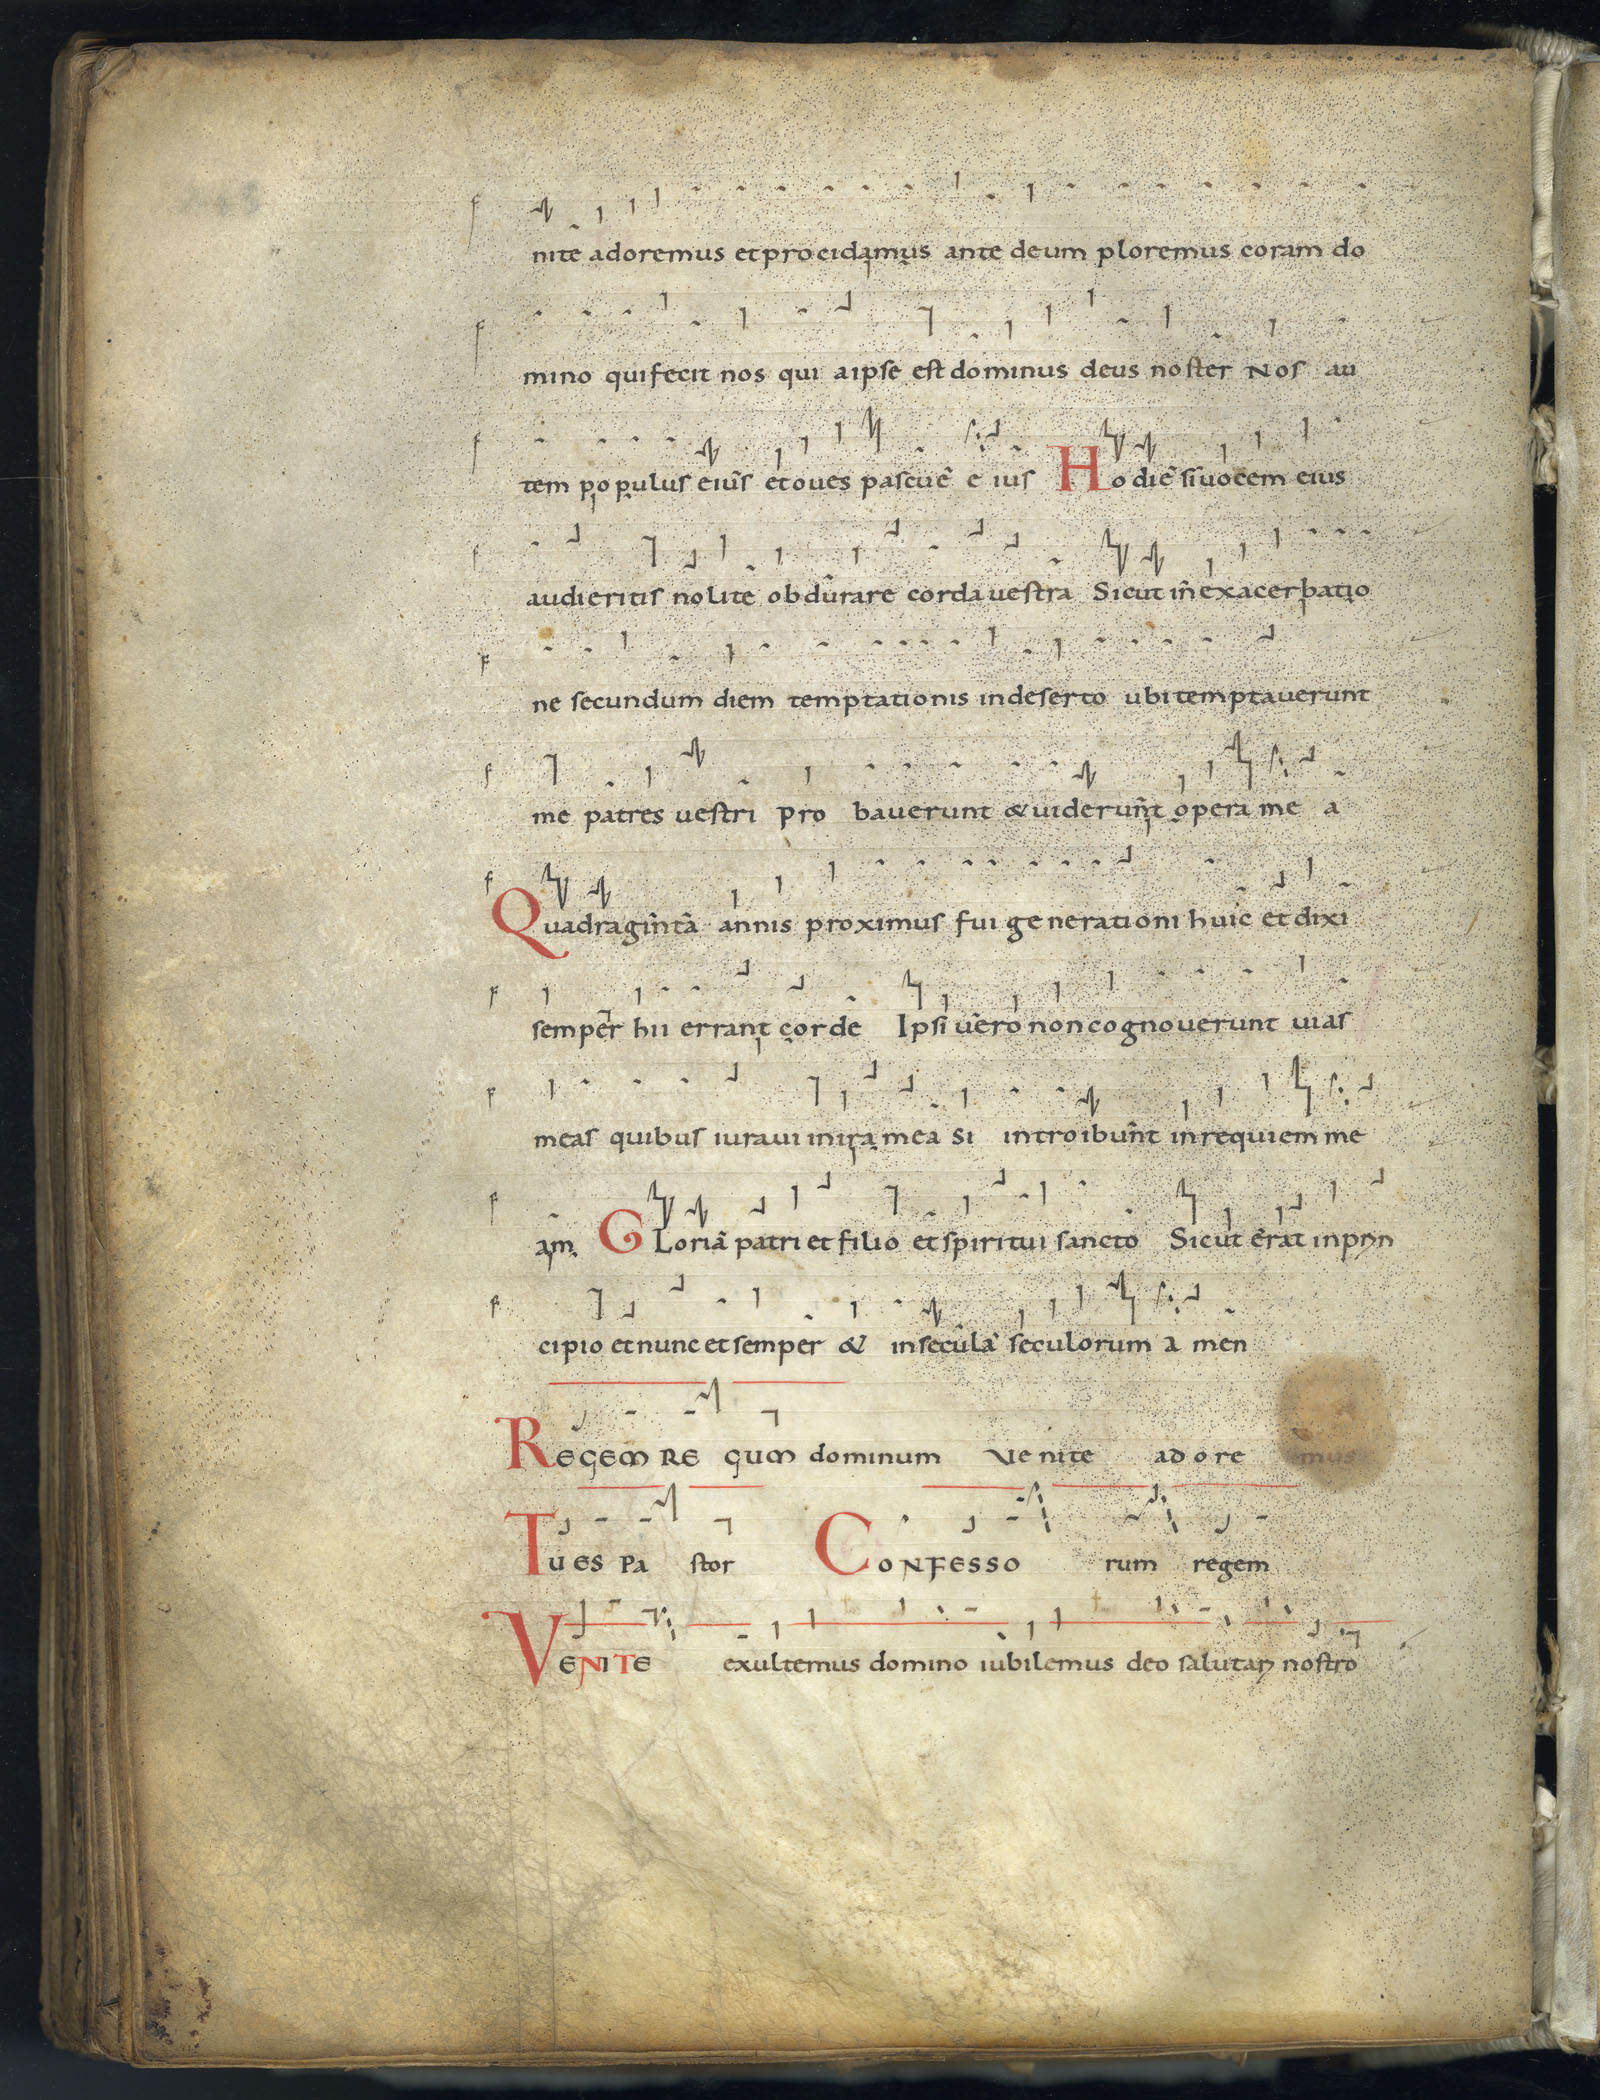 nite adoremus et procidamus ante deum ploremus coram do
mino qui fecit nos qui a ipse est dominus deus noster Nos au
tem populus eius et oves pascue e ius Hodie si vocem eius
audieritis nolite obdurare corda vestra Sicut in exacerbatio
ne secundum diem temptationis in deserto ubi temptaverunt
me patres vestri pro baverunt & viderunt opera me a
Quadraginta annis proximus fui generationi huic et dixi
semper hii errant corde Ipsi vero non cognoverunt vias
meas quibus iuravi in ira mea si introibunt in requiem me
am Gloria patri et filio et spiritui sancto Sicut erat in prin
cipio et nunc et semper & in secula seculorum a men
Regem re gum dominum Ve nite ad o re emus
Tu es pa stor Confesso rum regem
Venite exultemus domino iubilemus deo salutari nostro